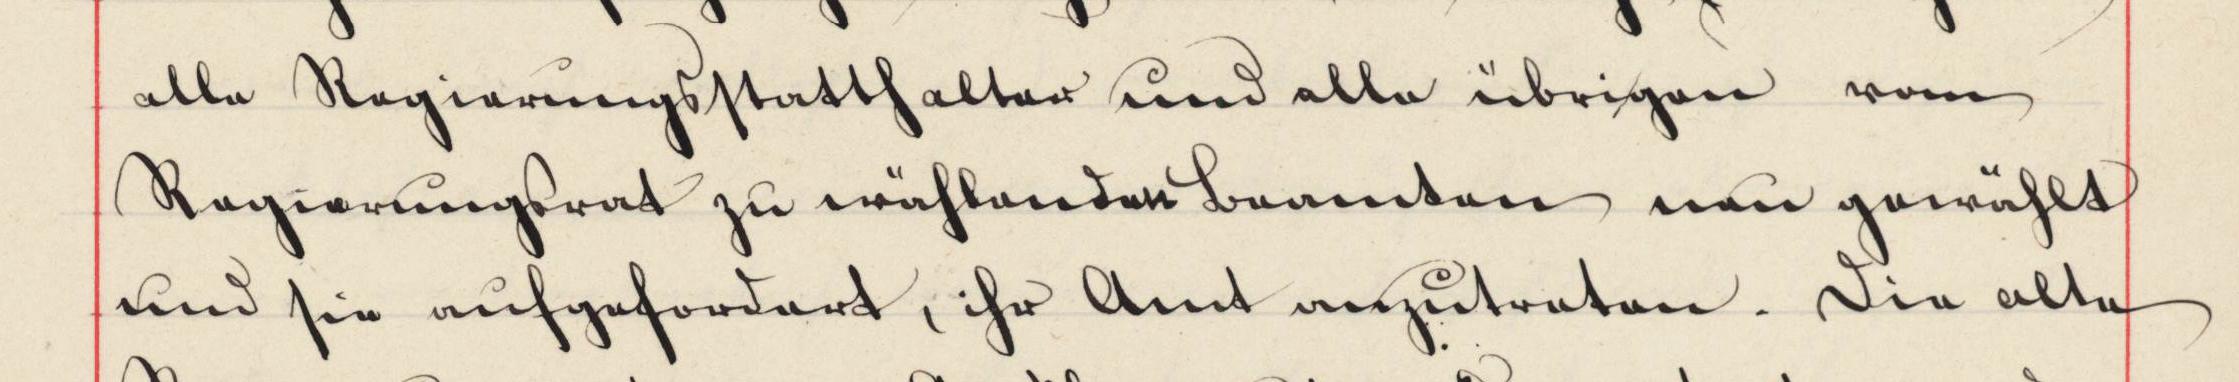 alle Regierungsstatthalter und alle übrigen vom
Regierungsrat zu wählenden Beamten neu gewählt
und sie aufgefordert, ihr Amt anzutreten. Die alte